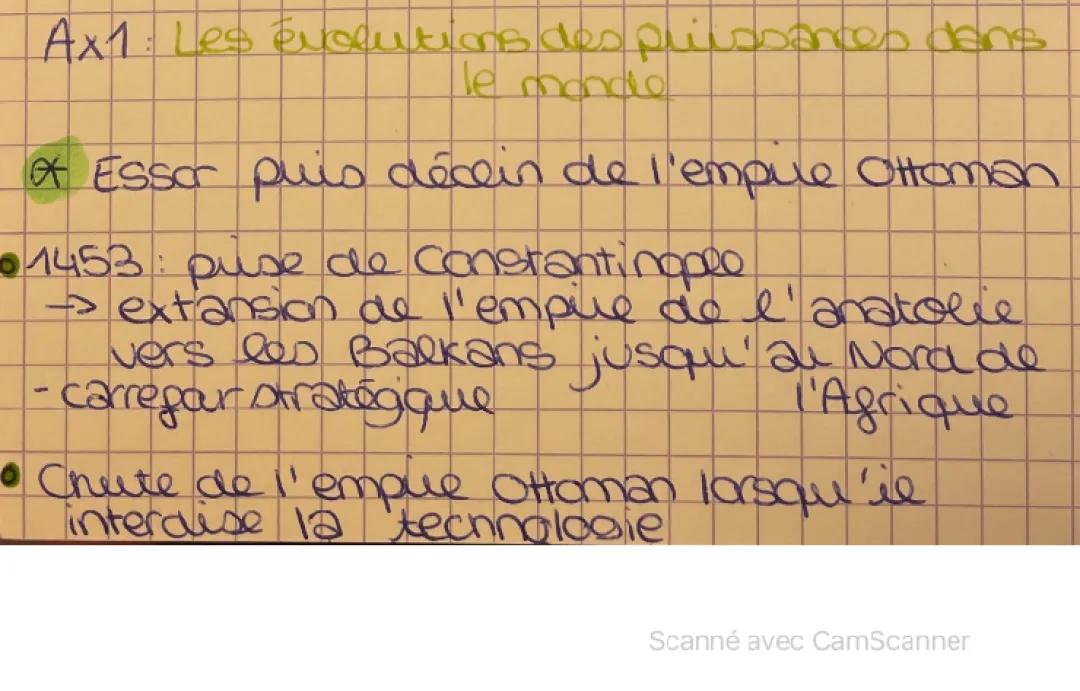 Ax1: Les évolutions des puissances dans
le monde
Essor puis déclin de l'empire Ottoman
1453: prise de Constantinople
-> extansion de l'empire de l'anatolie
vers les Balkans jusqu'au Nord de
- carrefour stratégique l'Afrique
Chute de l'empire Ottoman lorsqu'il
interdise la technologie
Scanné avec CamScanner